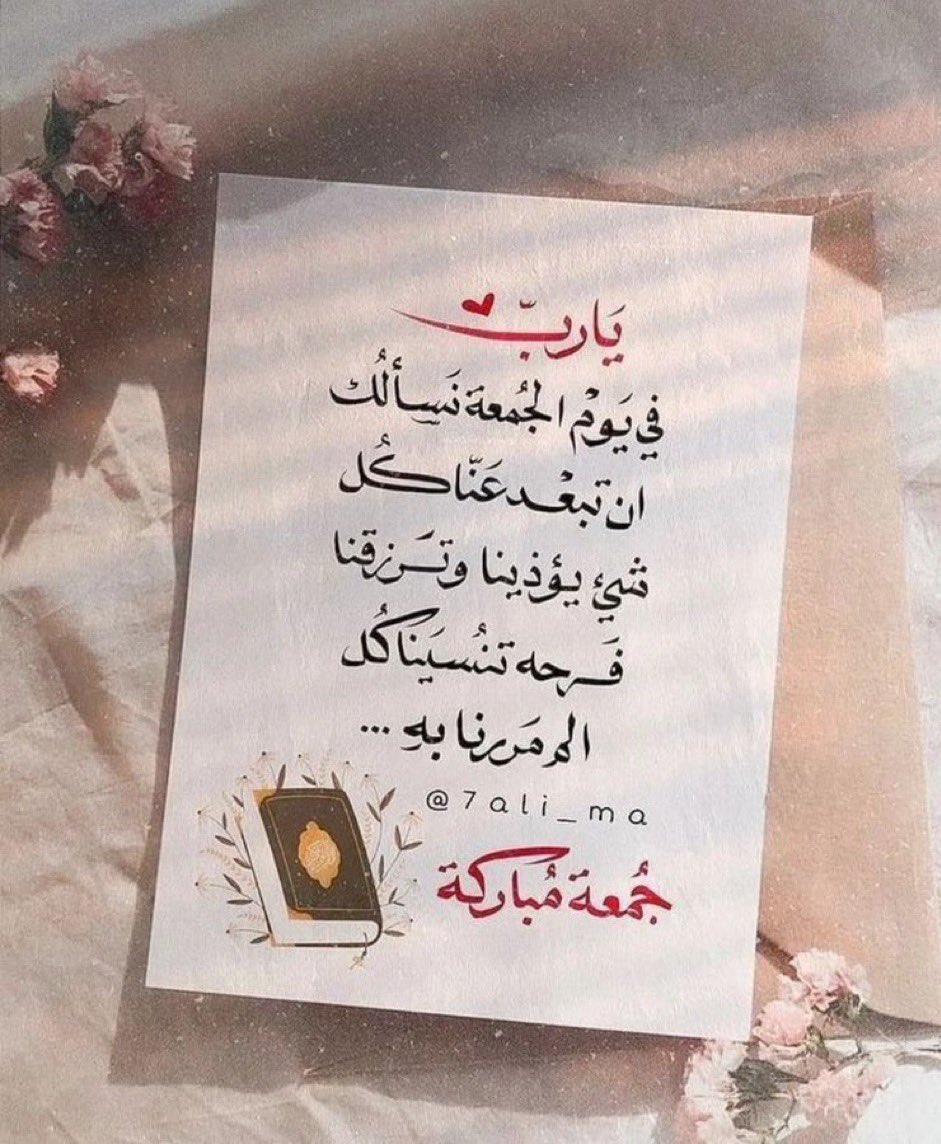 يَاربّ
في يَوْم الجُمعة نَسألُك
ان تبعْد عَنّا كُل
شيء يؤذينا وتَرزقنا
فَرحه تنُسيَنا كُل
الم مَررنا بهِ ...
@7ali_ma
جُمعة مُباركة